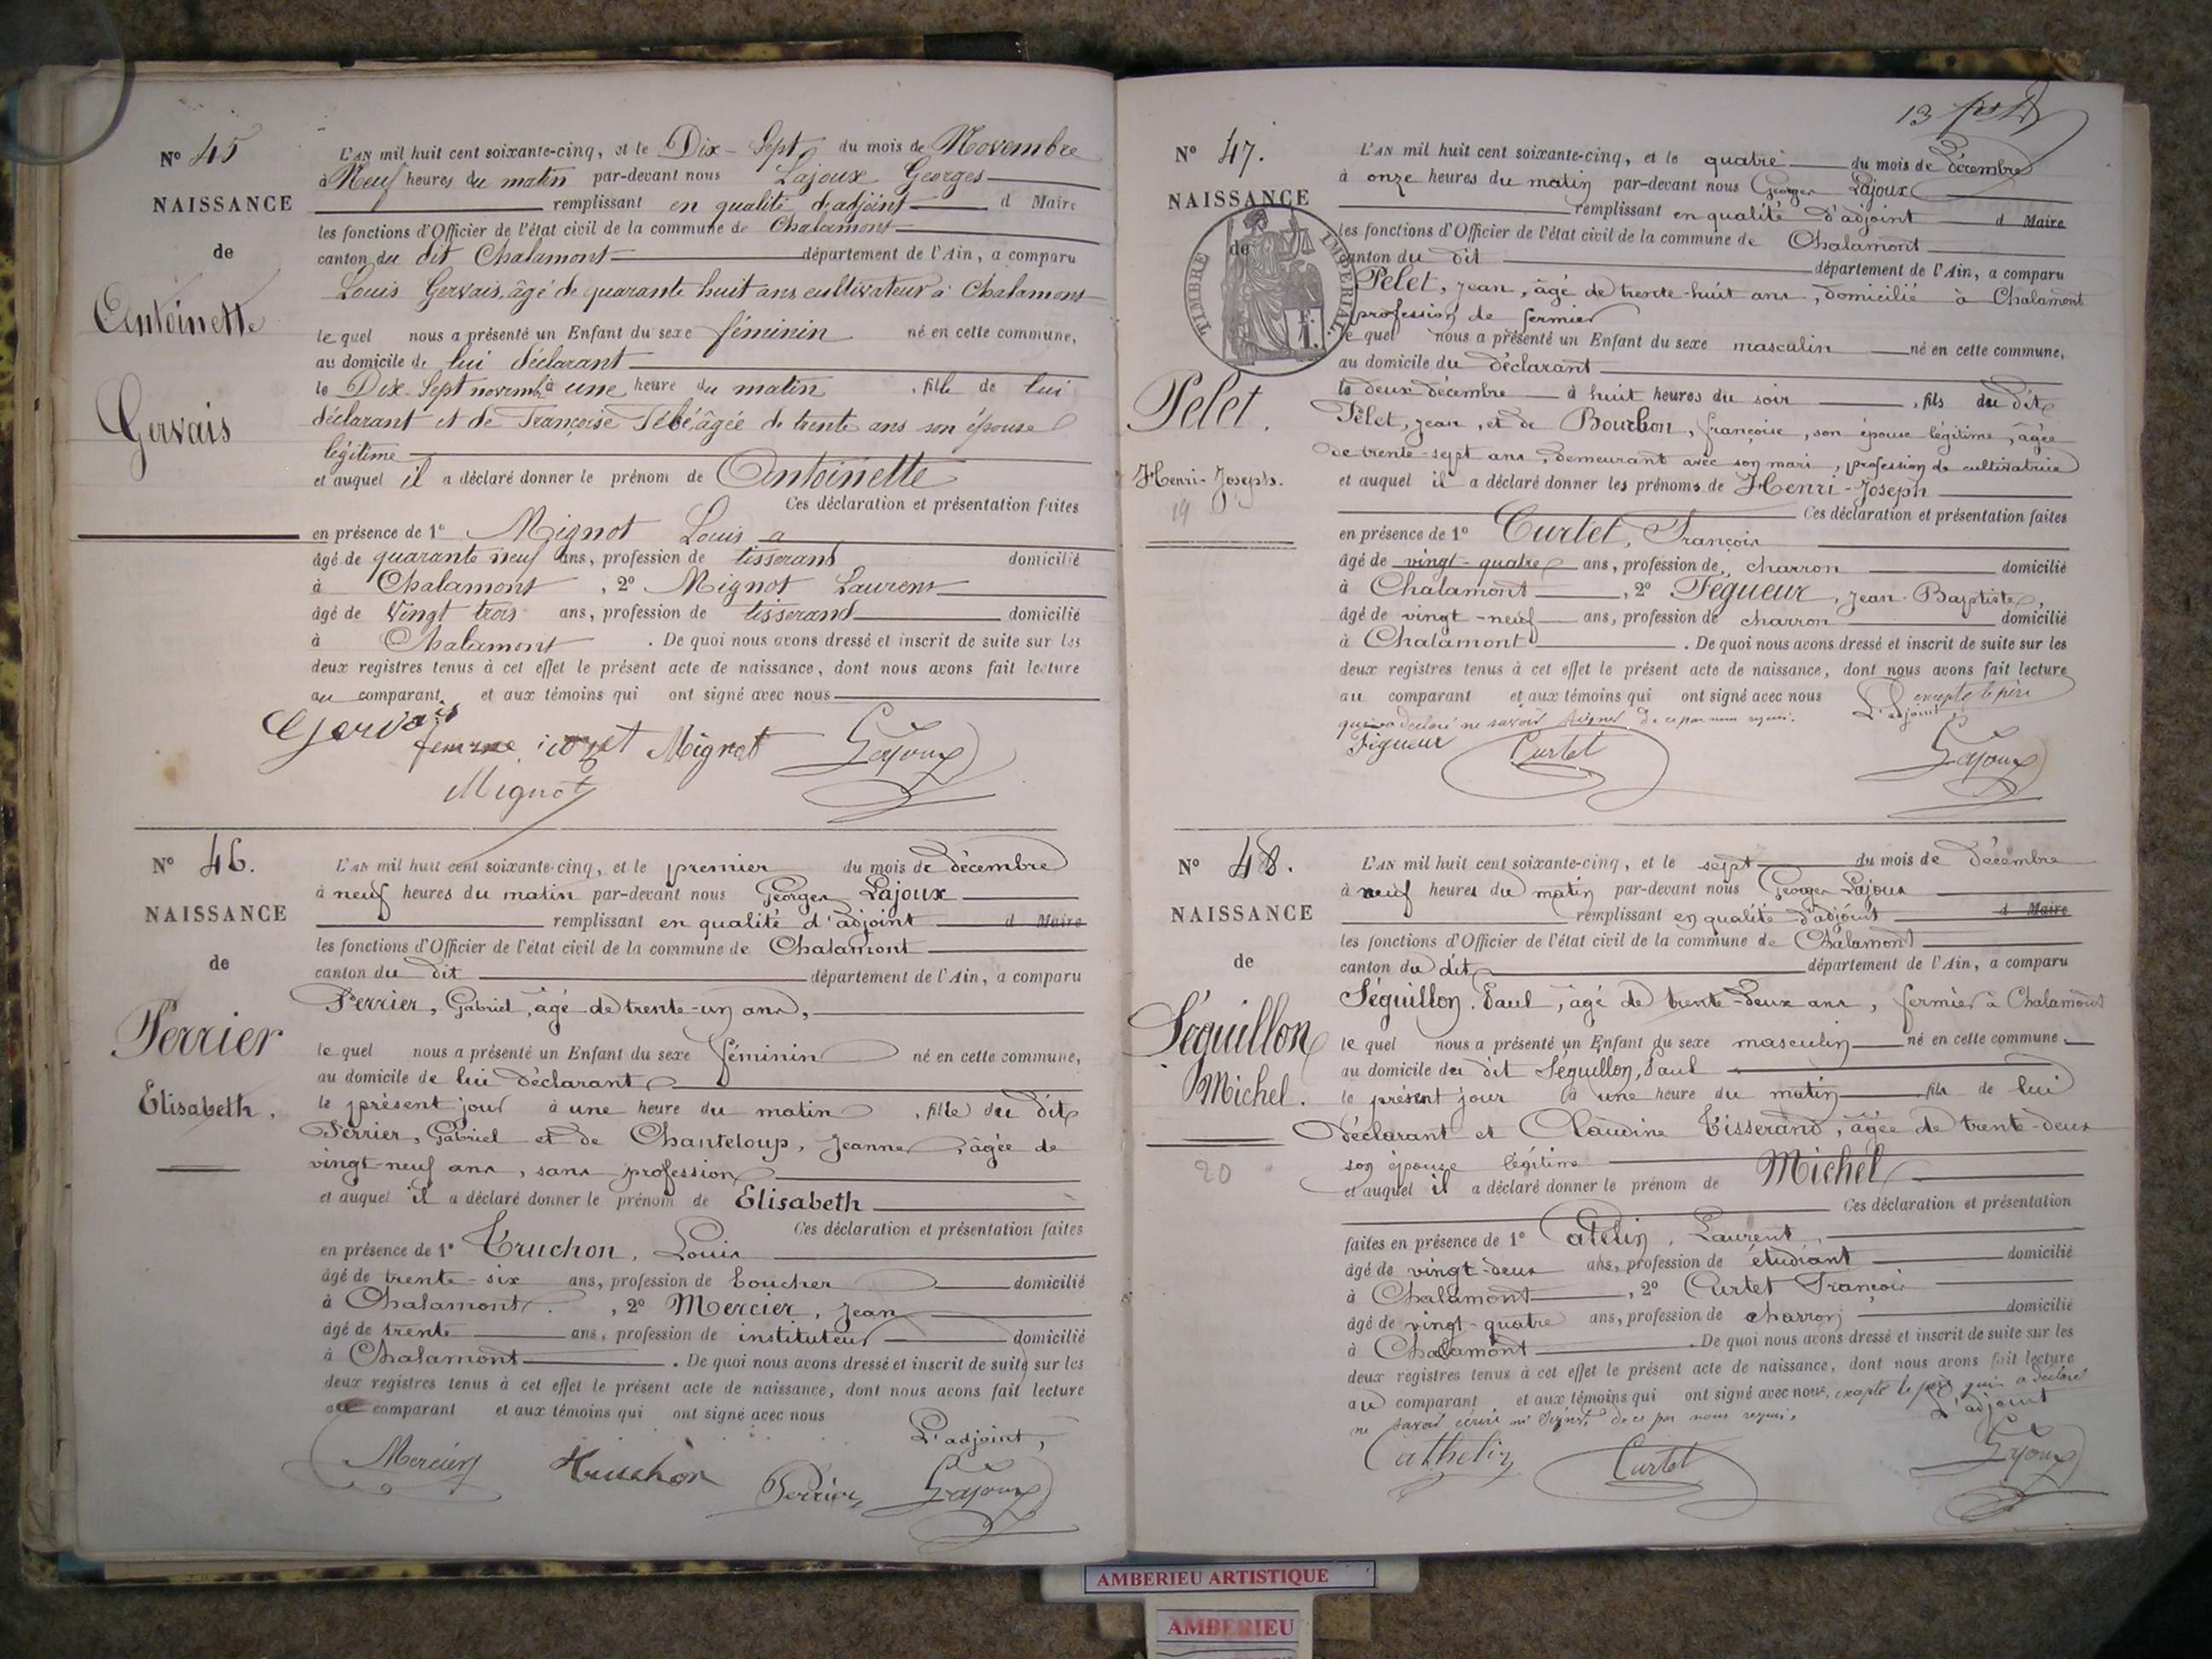 N° 45
NAISSANCE
de
Antoinette
Gervais
L'AN mil huit cent soixante-cinq, et le Dix-Sept du mois de Novembre
à Neuf heures du matin par-devant nous Lajoux Georges
remplissant en qualité d'adjoint d Maire
les fonctions d'Officier de l'état civil de la commune de Chalamont
canton du dit Chalamont département de l'Ain, a comparu
Louis Gervais, âgé de quarante huit ans cultivateur à Chalamont
le quel nous a présenté un Enfant du sexe féminin né en cette commune,
au domicile de lui déclarant
le Dix-Sept novemb. à une heure du matin , fille de lui
déclarant et de Françoise âgée de trente ans son épouse
légitime
et auquel il a déclaré donner le prénom de Antoinette
Ces déclaration et présentation faites
en présence de 1° Mignot Louis a
âgé de quarante neuf ans, profession de tisserand domicilié
à Chalamont , 2° Mignot Laurent
âgé de Vingt trois ans, profession de tisserand domicilié
à Chalamont . De quoi nous avons dressé et inscrit de suite sur les
deux registres tenus à cet effet le présent acte de naissance, dont nous avons fait lecture
au comparant et aux témoins qui ont signé avec nous
Gervais
femme Mignot Lajoux
Mignot
N° 46.
NAISSANCE
de
Perrier
Elisabeth.
L'AN mil huit cent soixante-cinq, et le premier du mois de décembre
à neuf heures du matin par-devant nous Georges Lajoux
remplissant en qualité d'adjoint d Maire
les fonctions d'Officier de l'état civil de la commune de Chalamont
canton du dit département de l'Ain, a comparu
Perrier, Gabriel, âgé de trente-un ans,
le quel nous a présenté un Enfant du sexe féminin né en cette commune,
au domicile de lui déclarant
le présent jour à une heure du matin , fille du dit
Perrier, Gabriel et de Chanteloup, Jeanne, âgée de
vingt-neuf ans, sans profession
et auquel il a déclaré donner le prénom de Elisabeth
Ces déclaration et présentation faites
en présence de 1° Truchon, Louis
âgé de trente-six ans, profession de boucher domicilié
à Chalamont. , 2° Mercier, Jean
âgé de trente ans, profession de instituteur domicilié
à Chalamont . De quoi nous avons dressé et inscrit de suite sur les
deux registres tenus à cet effet le présent acte de naissance, dont nous avons fait lecture
au comparant et aux témoins qui ont signé avec nous
L'adjoint,
Mercier Truchon Perrier Lajoux
13
N° 47.
NAISSANCE
de
TIMBRE IMPÉRIAL
Pelet.
Henri-Joseph.
19
L'AN mil huit cent soixante-cinq, et le quatre du mois de Décembre
à onze heures du matin par-devant nous Georges Lajoux
remplissant en qualité d'adjoint d Maire
les fonctions d'Officier de l'état civil de la commune de Chalamont
canton du dit département de l'Ain, a comparu
Pelet, Jean, âgé de trente-huit ans, domicilié à Chalamont
profession de fermier
le quel nous a présenté un Enfant du sexe masculin né en cette commune,
au domicile du déclarant
le deux décembre à huit heures du soir , fils du dit
Pelet, Jean, et de Bourbon, françoise, son épouse légitime, âgée
de trente-sept ans, demeurant avec son mari, profession de cultivatrice
et auquel il a déclaré donner les prénoms de Henri-Joseph
Ces déclaration et présentation faites
en présence de 1° Curtet, François
âgé de vingt-quatre ans, profession de charron domicilié
à Chalamont , 2° Figueur, Jean-Baptiste,
âgé de vingt-neuf ans, profession de charron domicilié
à Chalamont . De quoi nous avons dressé et inscrit de suite sur les
deux registres tenus à cet effet le présent acte de naissance, dont nous avons fait lecture
au comparant et aux témoins qui ont signé avec nous excepté le père
qui a déclaré ne savoir signer de ce par nous requis. L'adjoint,
Figueur Curtet Lajoux
N° 48.
NAISSANCE
de
Séguillon
Michel.
20
L'AN mil huit cent soixante-cinq, et le sept du mois de Décembre
à neuf heures du matin par-devant nous Georges Lajoux
remplissant en qualité d'adjoint d Maire
les fonctions d'Officier de l'état civil de la commune de Chalamont
canton du dit département de l'Ain, a comparu
Séguillon, Paul, âgé de trente-deux ans, fermier à Chalamont
le quel nous a présenté un Enfant du sexe masculin né en cette commune,
au domicile du dit Séguillon, Paul
le présent jour à une heure du matin fils de lui
Déclarant et Claudine Tisserand, âgée de trente-deux
son épouse légitime
et auquel il a déclaré donner le prénom de Michel
Ces déclaration et présentation
faites en présence de 1° Catelin, Laurent,
âgé de vingt-deux ans, profession de étudiant domicilié
à Chalamont , 2° Curtet François
âgé de vingt-quatre ans, profession de charron domicilié
à Chalamont . De quoi nous avons dressé et inscrit de suite sur les
deux registres tenus à cet effet le présent acte de naissance, dont nous avons fait lecture
au comparant et aux témoins qui ont signé avec nous, excepté le père qui a déclaré
ne savoir écrire ni signer, de ce par nous requis. L'adjoint
Cathelin Curtet Lajoux
AMBERIEU ARTISTIQUE
AMBERIEU